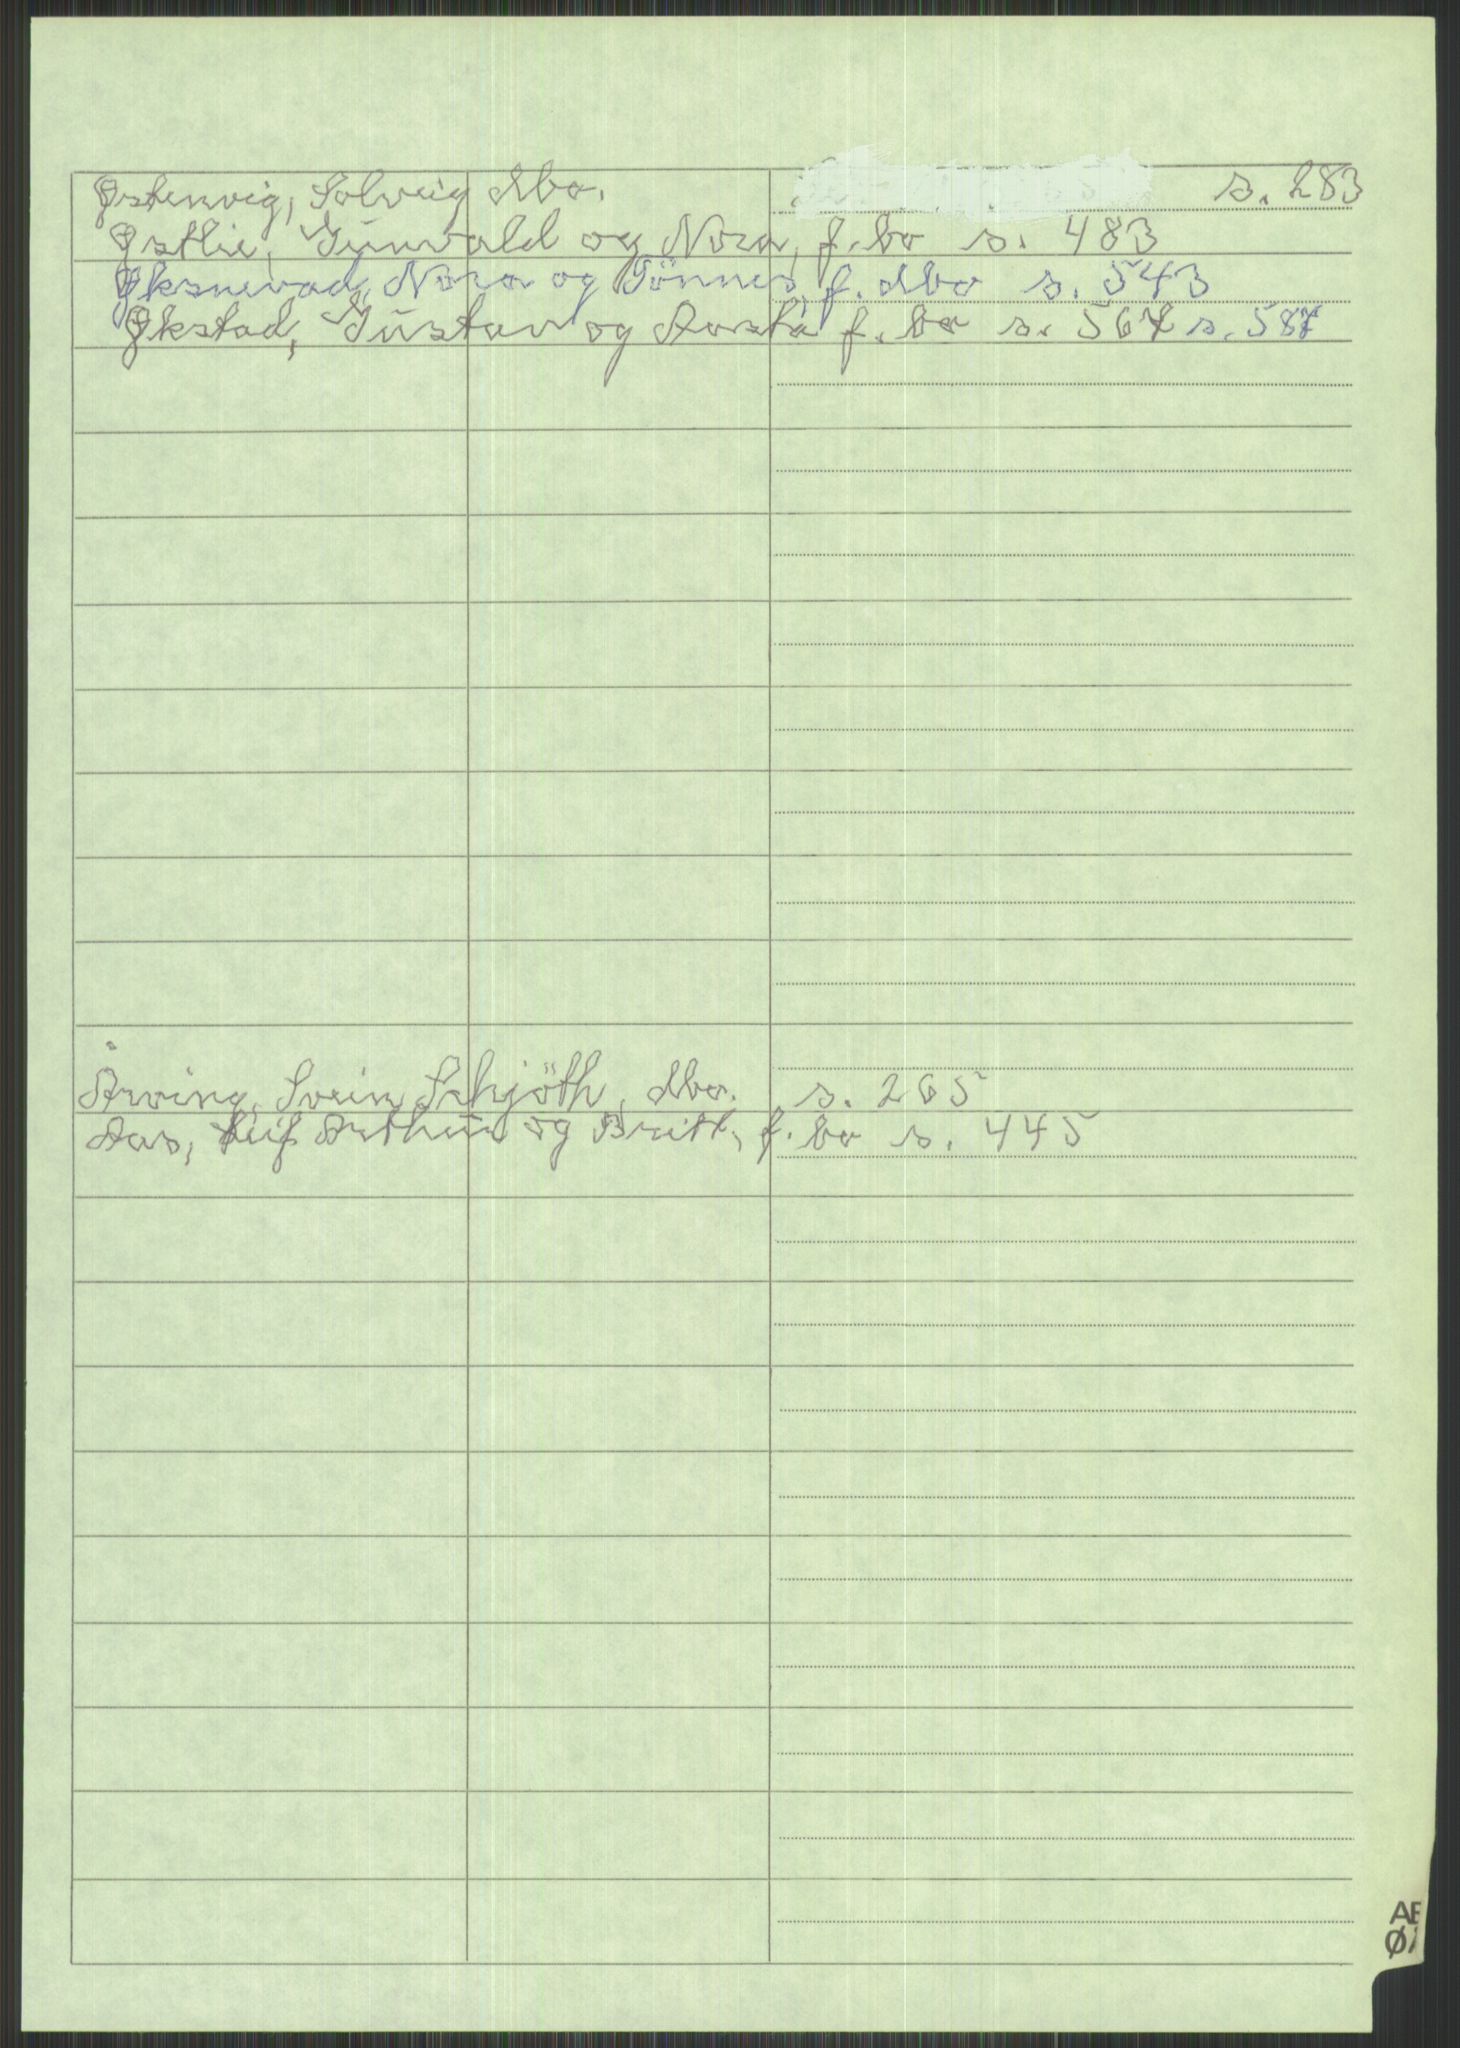 Østenvig, Solveig dbo. s. 283
Østlie, Gunvald og Nora, f. bo s. 483
Øksnevad, Nora og Tönnes, f. dbo s. 543
Økstad, Gustav og Aasta f. bo s. 567 s. 587
Årving, Svein Schjöth, dbo. s. 265
Aas, Leif Arthur og Britt, f. bo s. 445